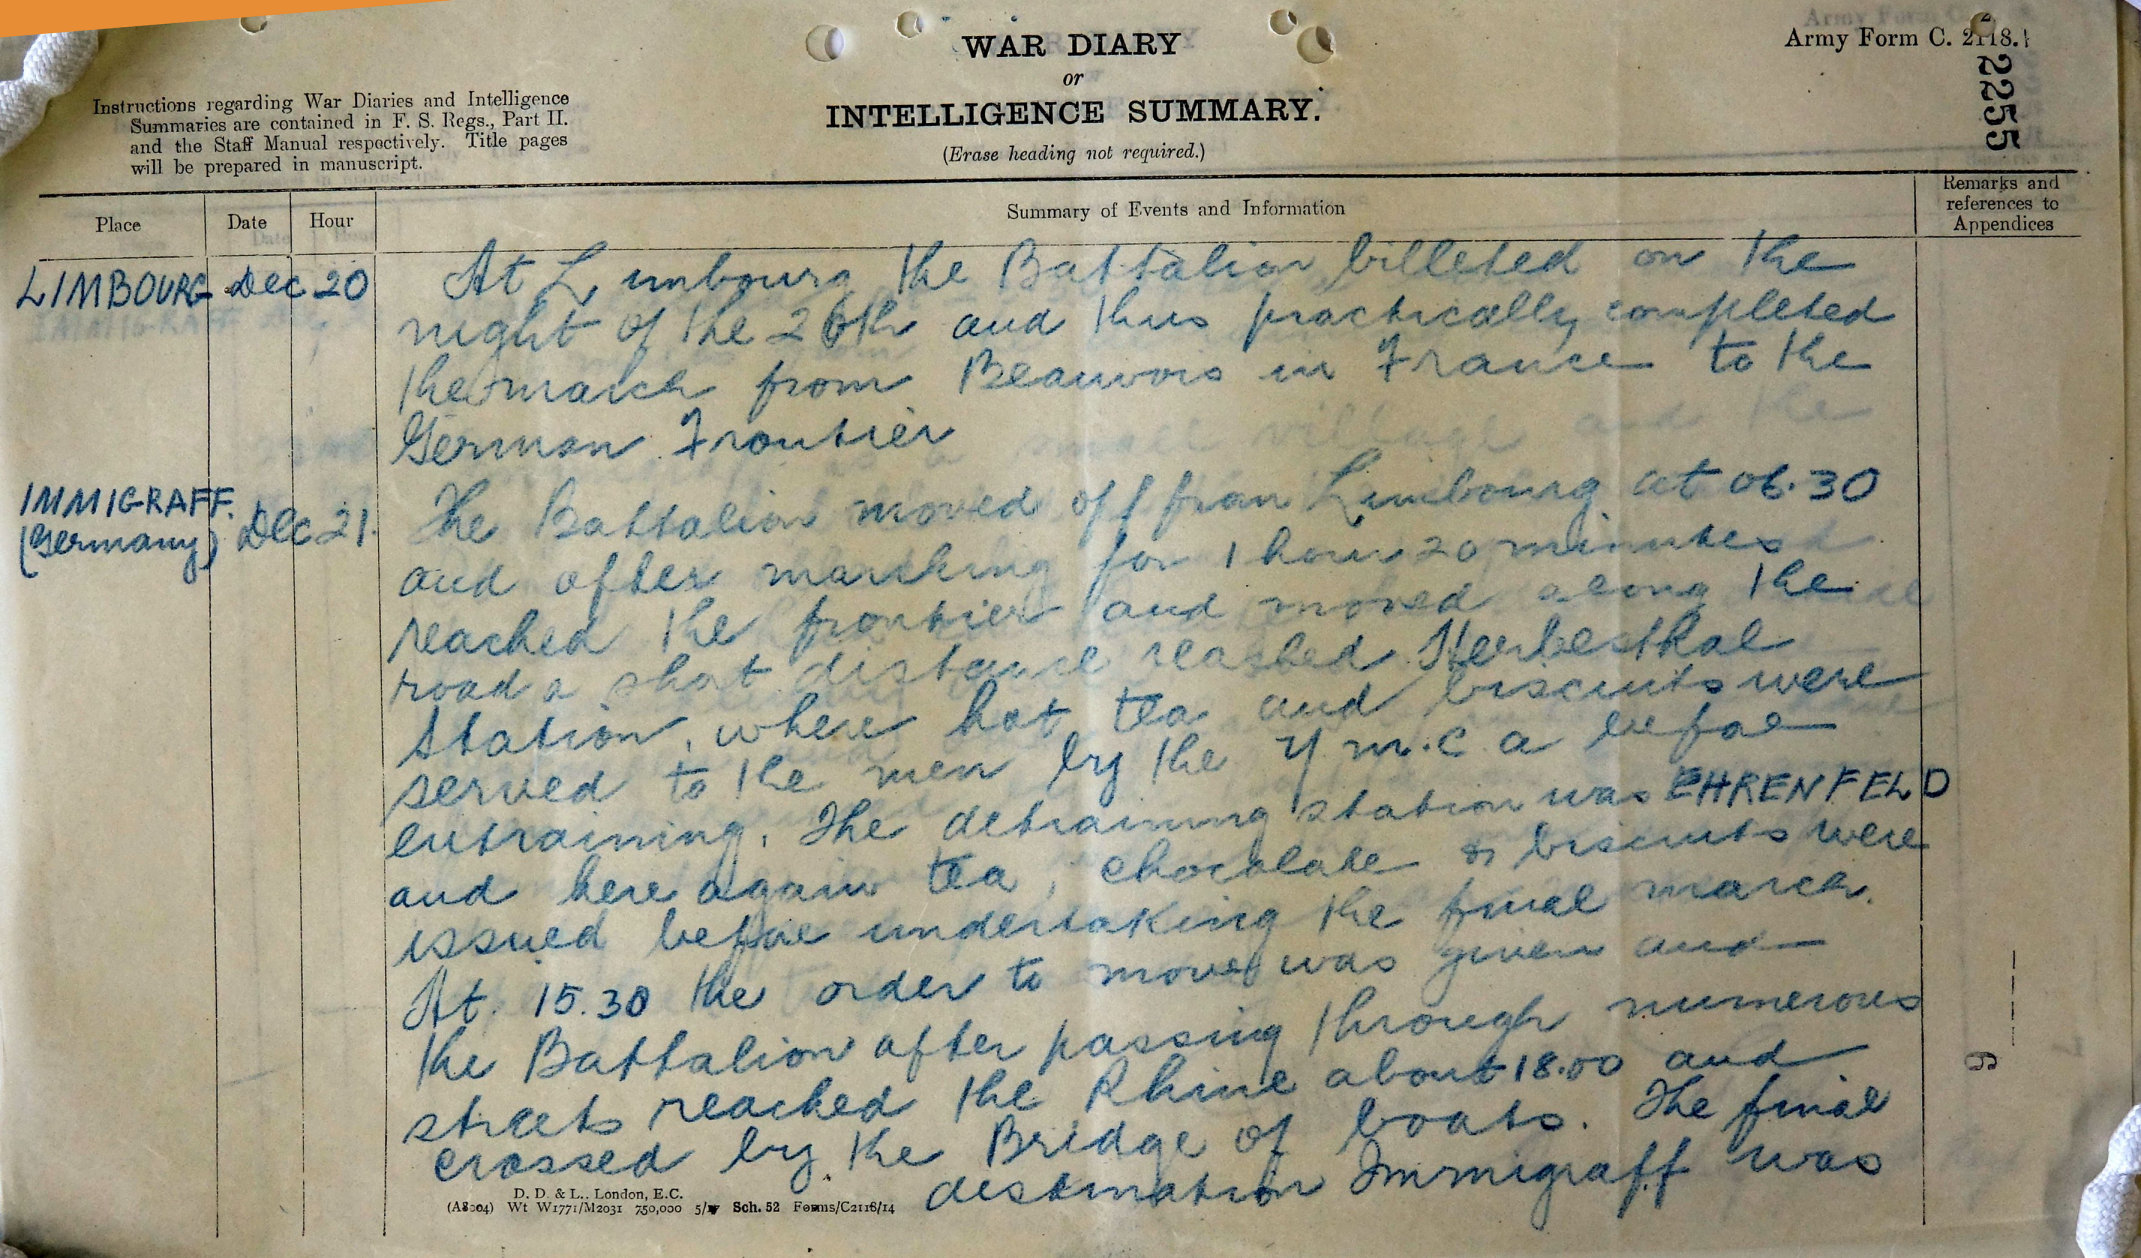 WAR DIARY
or
INTELLIGENCE SUMMARY.
(Erase heading not required.)
Army Form C. 2118.
2255
Instructions regarding War Diaries and Intelligence
Summaries are contained in F. S. Regs., Part II.
and the Staff Manual respectively. Title pages
will be prepared in manuscript.
Place Date Hour Summary of Events and Information Remarks and
references to
Appendices
LIMBOURG Dec 20 At Limbourg the Battalion billeted on the
night of the 20th and thus practically completed
the march from Beauvois in France to the
German Frontier
IMMIGRAFF.
(Germany) Dec 21. The Battalion moved off from Limbourg at 06.30
and after marching for 1 hour 20 minutes
reached the frontier and moved along the
road a short distance reached Herbesthal
Station, where hot tea and biscuits were
served to the men by the Y M.C A before
entraining. The detraining station was EHRENFELD
and here again tea, chocolate & biscuits were
issued before undertaking the final march.
At. 15.30 the order to move was given and
the Battalion after passing through numerous
streets reached the Rhine about 18.00 and
crossed by the Bridge of boats. The final
destination Immigraff was
D. D. & L., London, E.C.
(A8004) Wt W1771/M2031 750,000 5/17 Sch. 52 Forms/C2118/14